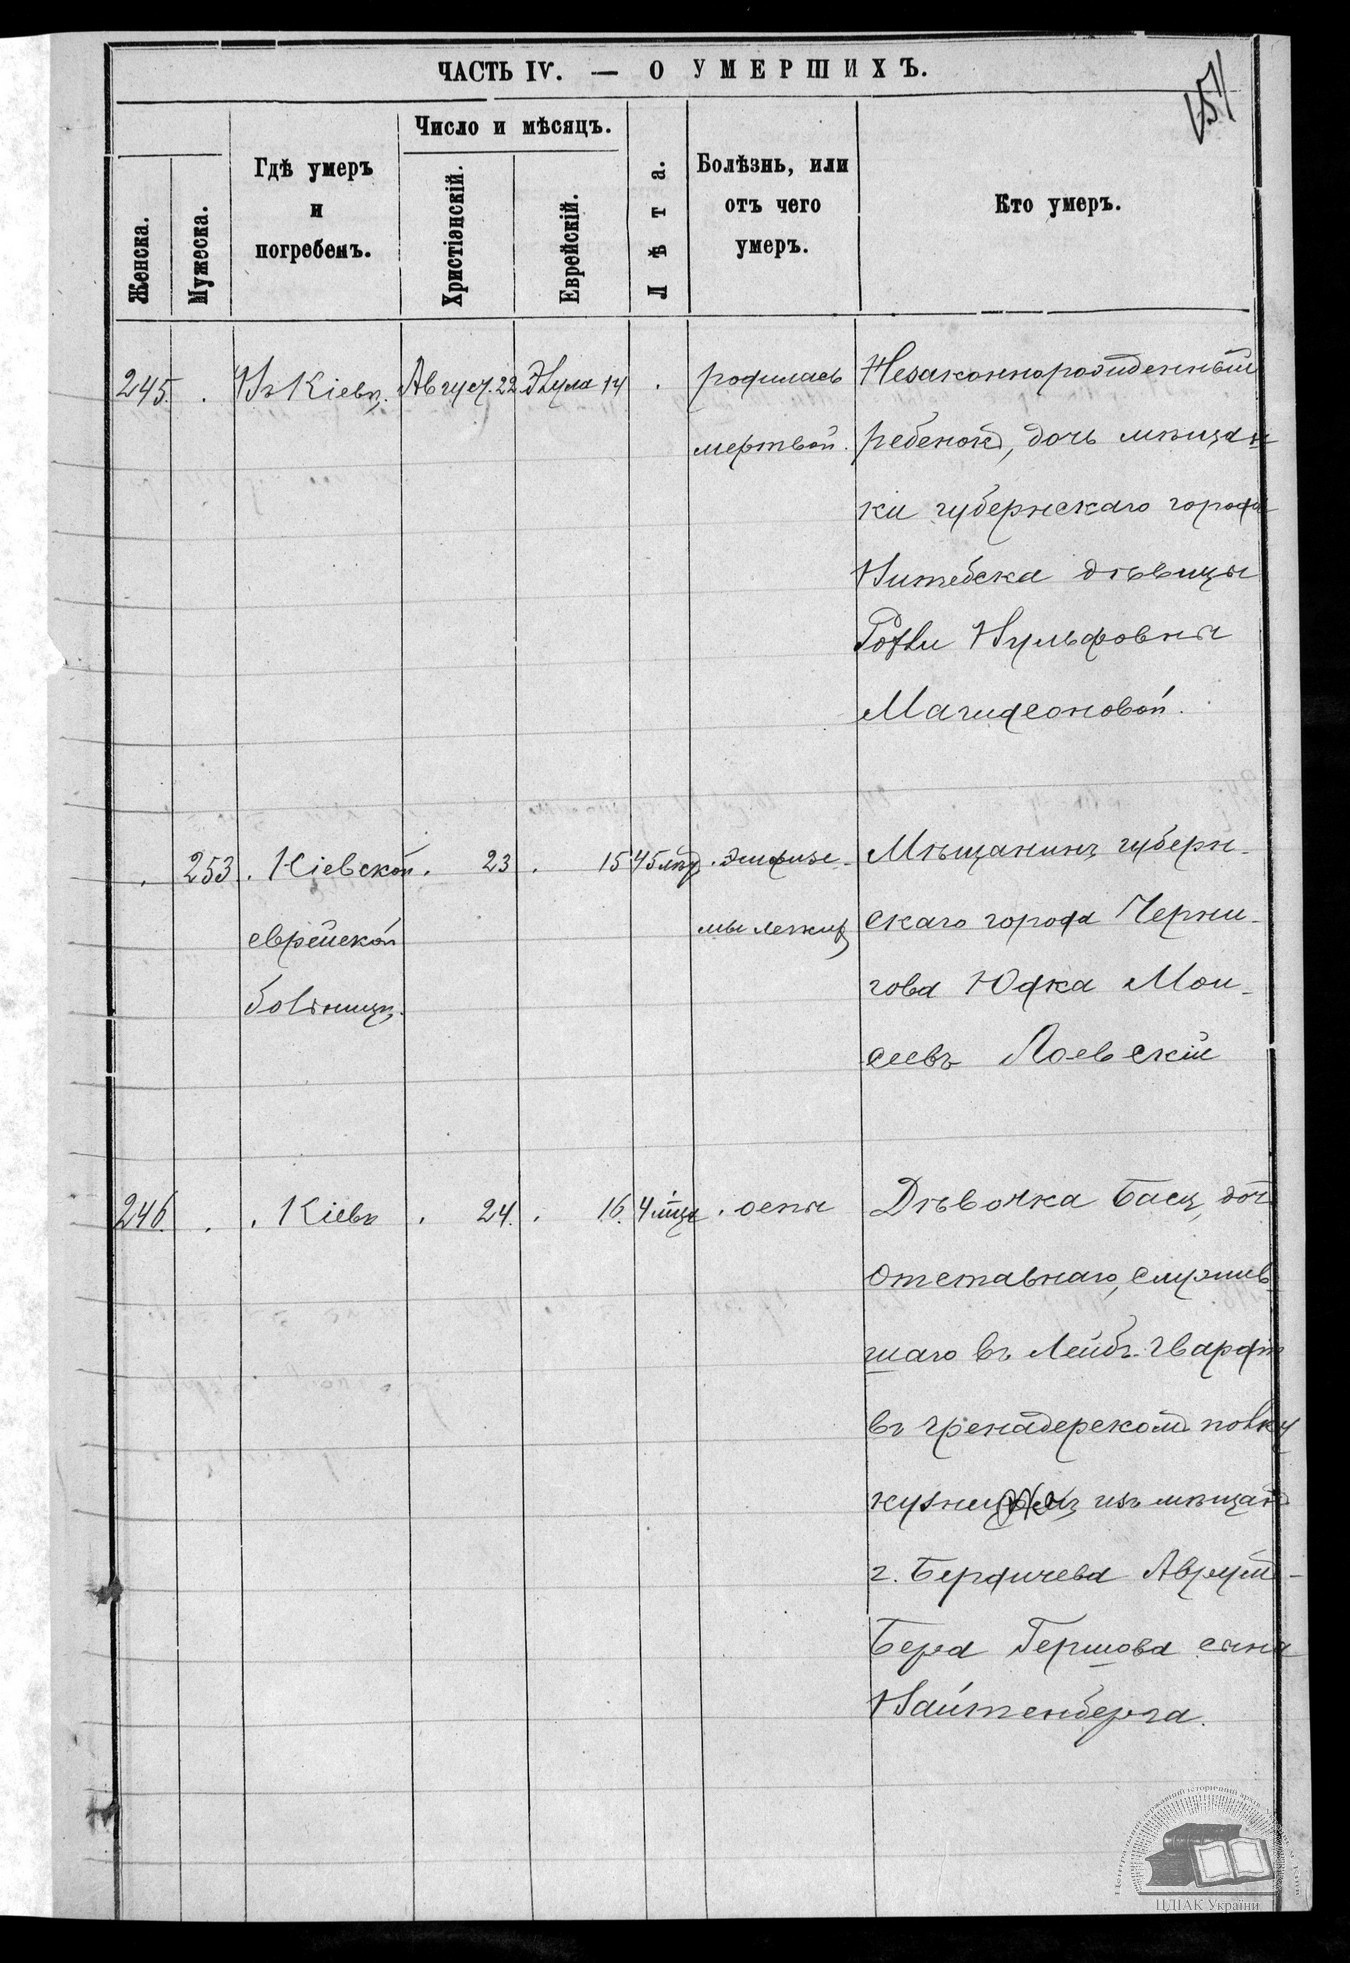 ЧАСТЬ IV. — О УМЕРШИХЪ.
151
Женска.
Мужеска.
Гдѣ умеръ
и
погребенъ.
Число и мѣсяцъ.
Христіанскій.
Еврейскій.
Лѣта.
Болѣзнь, или
отъ чего
умеръ.
Кто умеръ.
245. . Въ Кіевѣ. Август. 22 Элула 14 . родилась Незаконнорожденный
мертвой. ребенокъ, дочь мѣщан-
ки губернскаго города
Витебска дѣвицы
Вульфовны
Магидсоновой.
. 253 . Кіевской . 23 . 15 45 лѣтъ . эмфизе- Мѣщанинъ губерн-
еврейской мы легкихъ скаго города Черни-
больницѣ. гова Юдка Мои-
сеевъ Лоевскій
246. . . Кіевѣ . 24. . 16. 4 мѣсца . оспы Дѣвочка Бася, доч
отставнаго, служив
шаго въ Лейбъ-Гвардіи
въ гренадерскомъ полку
изъ мѣщанъ
г. Бердичева Аврумъ-
Бера Гершова сына
Вайтенберга.
ЦДІАК України